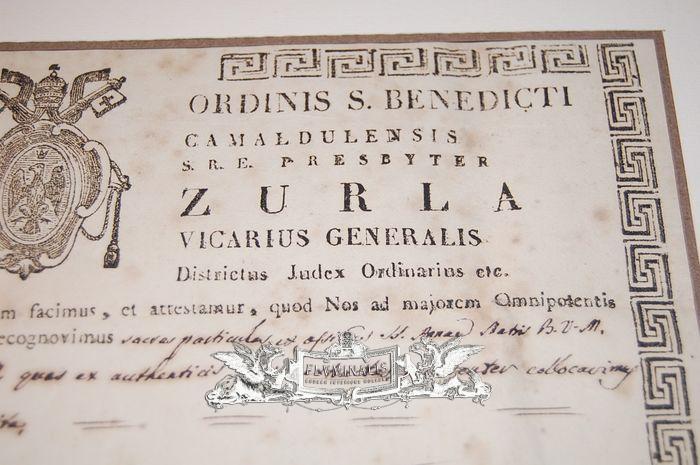 ORDINIS S. BENEDICTI
CAMALDULENSIS
S. R. E. PRESBYTER
ZURLA
VICARIUS GENERALIS
Districtus Judex Ordinarius etc.
m facimus, et attestamur, quod Nos ad majorem Omnipotentis
ecognovimus sacras particulas ex ossibus SS. Annae Matis B.V.M.
quas ex authenticis collocavimus
FLUMINALIS